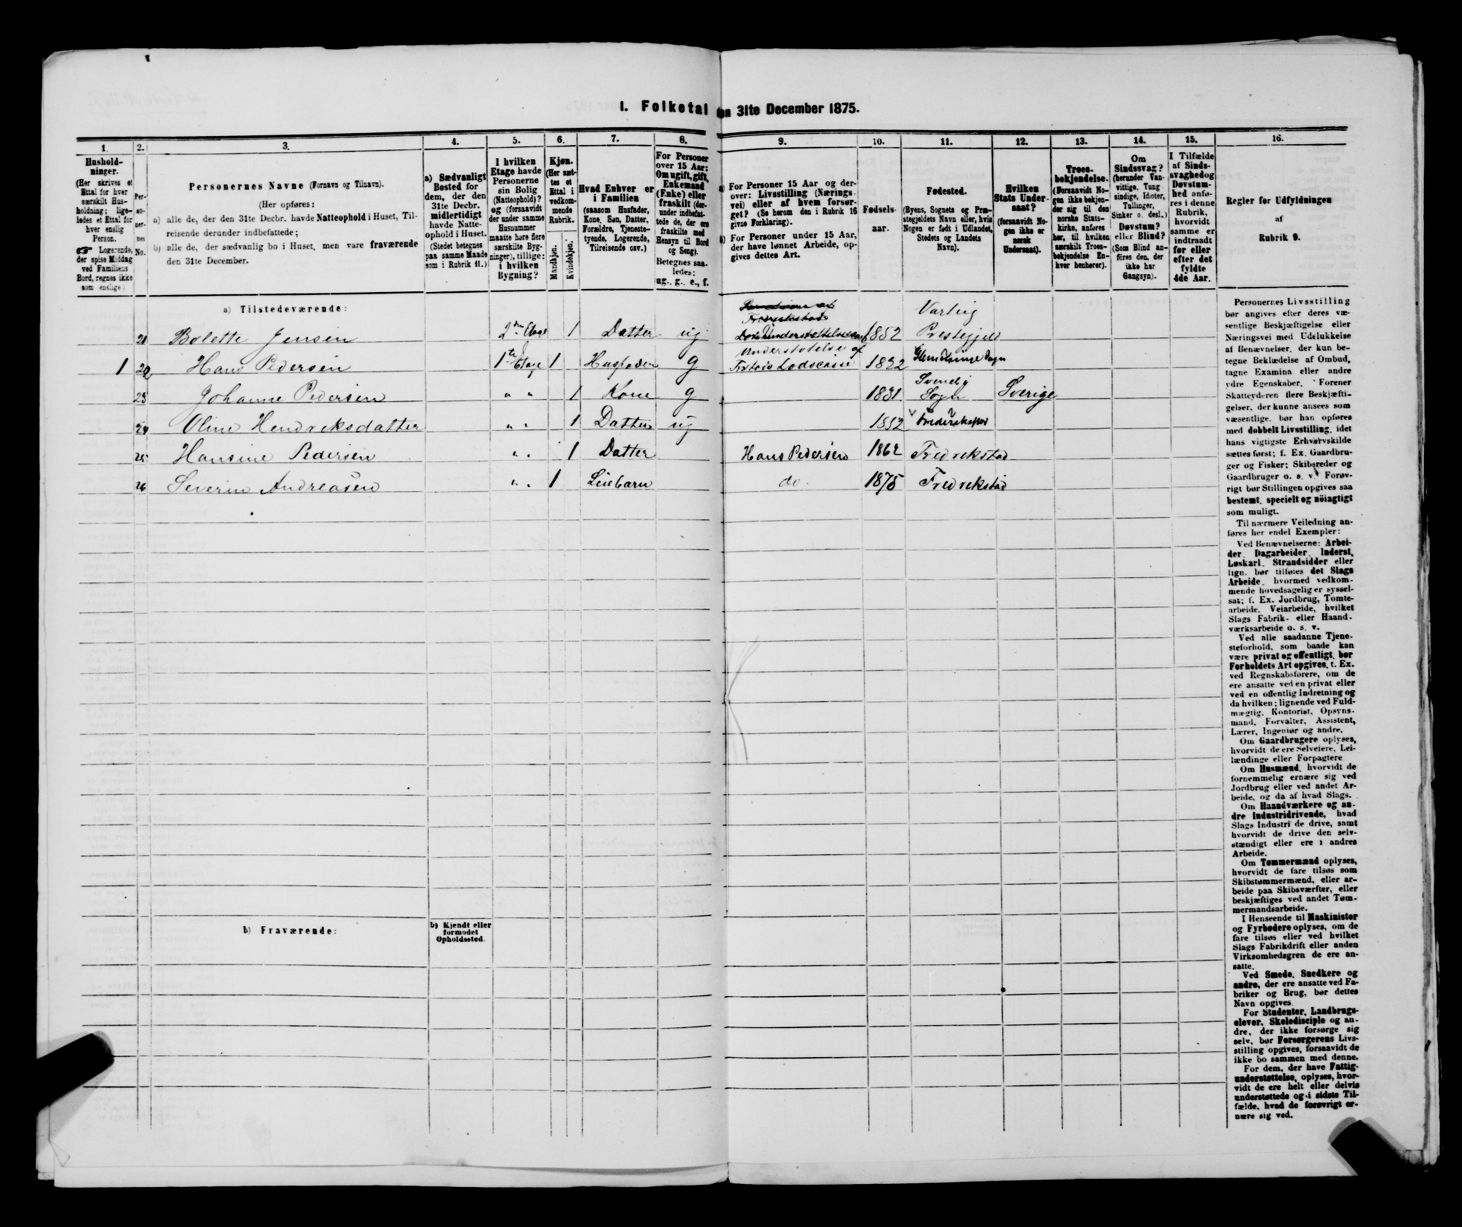 I. Folketal den 31te December 1875.
1. 2. 3. 4. 5. 6. 7. 8. 9. 10. 11. 12. 13. 14. 15. 16.
Hushold-
ninger.
(Her skrives et
Ettal for hver
særskilt Hus-
holdning; lige-
ledes et Ettal for
hver enslig
Person.
Logerende,
der spise Middag
ved Familiens
Bord, regnes ikke
som enslige)
Per-
so-
ner-
nes
No.
Personernes Navne (Fornavn og Tilnavn).
(Her opføres:
a) alle de, der den 31te Decbr. havde Natteophold i Huset, Til-
reisende derunder indbefattede;
b) alle de, der sædvanlig bo i Huset, men vare fraværende
den 31te December.
a) Sædvanligt
Bosted for
dem, der den
31te Decbr.
midlertidigt
havde Natte-
ophold i Huset.
(Stedet betegnes
paa samme Maade
som i Rubrik 11.)
I hvilken
Etage havde
Personerne
sin Bolig
(Natteophold)?
og (forsaavidt
der under samme
Husnummer
maatte høre flere
særskilte Byg-
ninger), tillige:
i hvilken
Bygning?
Kjøn.
(Her sæt-
tes et
Ettal i
vedkom-
mende
Rubrik.
Mandkjøn.
Kvindekjøn.
Hvad Enhver er
i Familien
(saasom Husfader,
Kone, Søn, Datter,
Forældre, Tjeneste-
tyende, Logerende,
Tilreisende osv.)
For Personer
over 15 Aar:
Om ugift, gift,
Enkemand
(Enke) eller
fraskilt (der-
under indbefat-
tede de, der ere
fraskilte med
Hensyn til Bord
og Seng).
Betegnes saa-
ledes:
ug., g., e., f.
a) For Personer 15 Aar og der-
over: Livsstilling (Nærings-
vei) eller af hvem forsør-
get? (Se herom den i Rubrik 16
givne Forklaring).
b) For Personer under 15 Aar,
der have lønnet Arbeide, op-
gives dettes Art.
Fødsels-
aar.
Fødested.
(Byens, Sognets og Præ-
stegjeldets Navn eller, hvis
Nogen er født i Udlandet,
Stedets og Landets
Navn).
Hvilken
Stats Under-
saat?
(forsaavidt No-
gen ikke er
norsk
Undersaat).
Troes-
bekjendelse.
(Forsaavidt No-
gen ikke bekjen-
der sig til den
norske Stats-
kirke, anføres
her, til hvilken
særskilt Troes-
bekjendelse En-
hver henhører).
Om
Sindssvag?
(herunder Van-
vittige, Tung
sindige, Idioter,
Tullinger,
Sinker o. desl.)
Døvstum?
eller Blind?
(Som Blind an-
føres den, der
ikke har
Gangsyn).
I Tilfælde
af Sinds-
svaghed og
Døvstum-
hed anfø-
res i denne
Rubrik,
hvorvidt
samme er
indtraadt
før eller
efter det
fyldte
4de Aar.
Regler for Udfyldningen
af
Rubrik 9.
a) Tilstedeværende:
21 Bolette Jensen 2den Etage 1 Datter ug 1852 Præstegjeld
1 22 Hans Pedersen 1te Etage 1 Husfader g Understøttelse af 1832
23 Johanne Pedersen " " 1 Kone g 1831 Sogn Sverige
24 Oline Hendreksdatter " " 1 Datter ug 1852
25 Hansine Pedersen " " 1 Datter Hans Pedersen 1862 Fredrekstad
26 Severin Andreasen " " 1 Leiebarn do 1875 Fredrekstad
b) Fraværende:
b) Kjendt eller
formodet
Opholdssted.
Personernes Livsstilling
bør angives efter deres væ-
sentlige Beskjæftigelse eller
Næringsvei med Udelukkelse
af Benævnelser, der kun be-
tegne Beklædelse af Ombud,
tagne Examina eller andre
ydre Egenskaber. Forener
Skatteyderen flere Beskjæfti-
gelser, der kunne ansees som
væsentlige, bør han opføres
med dobbelt Livsstilling, idet
hans vigtigste Erhvervskilde
sættes først; f. Ex. Gaardbru-
ger og Fisker; Skibsreder og
Gaardbruger o. s. v. Forøv-
rigt bør Stillingen opgives saa
bestemt, specielt og nøiagtigt
som muligt.
Til nærmere Veiledning an-
føres her endel Exempler:
Ved Benævnelserne: Arbei-
der, Dagarbeider, Inderst,
Løskarl, Strandsidder eller
lign. bør tilføies det Slags
Arbeide, hvormed vedkom-
mende hovedsagelig er syssel-
sat; f. Ex. Jordbrug, Tomte-
arbeide, Veiarbeide, hvilket
Slags Fabrik- eller Haand-
værksarbeide o. s. v.
Ved alle saadanne Tjene-
steforhold, som baade kan
være privat og offentligt, bør
Forholdets Art opgives, t. Ex.
ved Regnskabsførere, om de
ere ansatte ved en privat eller
ved en offentlig Indretning og
da hvilken; lignende ved Fuld-
mægtig, Kontorist, Opsyns-
mand, Forvalter, Assistent,
Lærer, Ingeniør og andre.
Om Gaardbrugere oplyses,
hvorvidt de ere Selveiere, Lei-
lændinge eller Forpagtere
Om Husmænd, hvorvidt de
fornemmelig ernære sig ved
Jordbrug eller ved andet Ar-
beide, og da af hvad Slags.
Om Haandværkere og an-
dre Industridrivende, hvad
Slags Industri de drive, samt
hvorvidt de drive den selv-
stændigt eller ere i andres
Arbeide.
Om Tømmermænd oplyses,
hvorvidt de fare tilsøs som
Skibstømmermænd, eller ar-
beide paa Skibsværfter, eller
beskjæftiges ved andet Tøm-
mermandsarbeide.
I Henseende til Maskinister
og Fyrbødere oplyses, om de
fare tilsøs eller ved hvilket
Slags Fabrikdrift eller anden
Virksomhedsgren de ere an-
satte.
Ved Smede, Snedkere og
andre, der ere ansatte ved Fa-
briker og Brug, bør dettes
Navn opgives.
For Studenter, Landbrugs-
elever, Skoledisciple og an-
dre, der ikke forsørge sig
selv, bør Forsørgerens Livs-
stilling opgives, forsaavidt de
ikke bo sammen med denne.
For dem, der have Fattig-
understøttelse, oplyses, hvor-
vidt de ere helt eller delvis
understøttede og i sidste Til-
fælde, hvad de forøvrigt er-
nære sig ved.